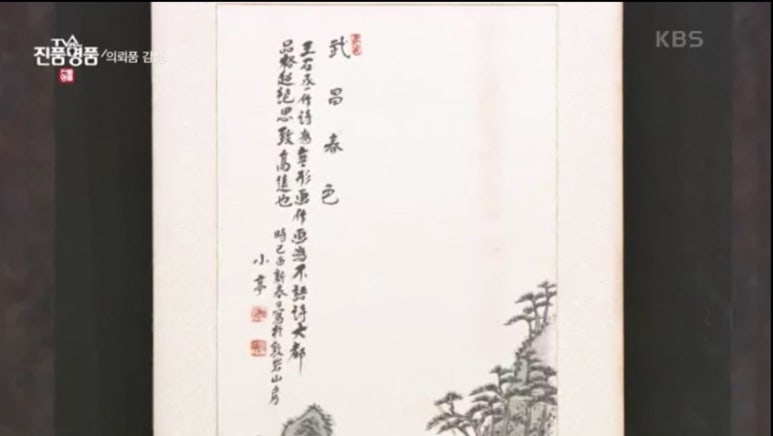 TV쇼
진품명품 / 의뢰품 감정
KBS
武昌春色
王右丞作詩為無形畫作畫為不語詩大都
品格超絕思致高遠也
時己酉新春日寫於敦岩山房
小亭